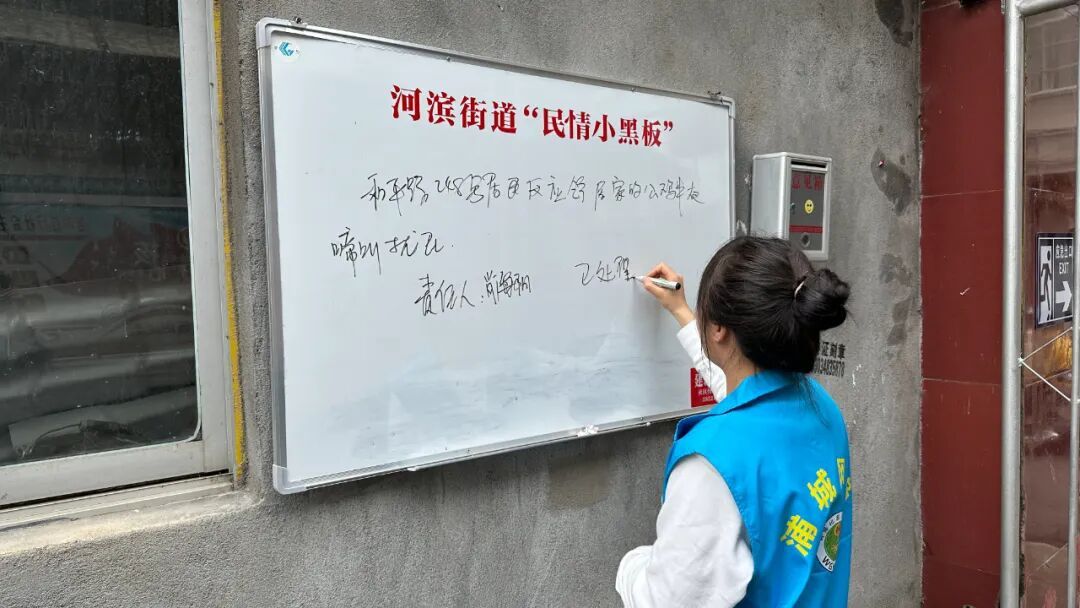 河滨街道“民情小黑板”
和平路248号居民反应邻居家的公鸡半夜
啼叫扰民.
责任人:
已处理
意见箱
证刻章
安全出口
EXIT
浦城